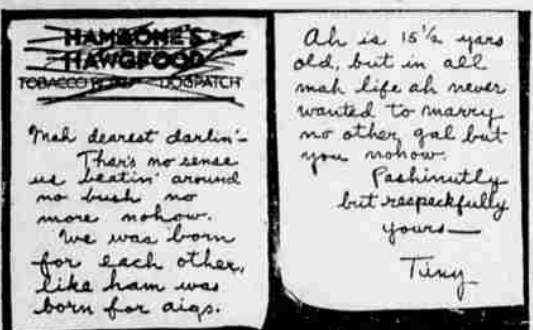 HAMBONE'S
HAWGFOOD
TOBACCO DOGPATCH
Mah dearest darlin'-
Thar's no sense
us beatin' around
no bush no
more nohow.
We was born
for each other,
like ham was
born for aigs.
Ah is 15½ yars
old, but in all
mah life ah never
wanted to marry
no other gal but
you nohow.
Pashinutly
but respeckfully
yours—
Tiny